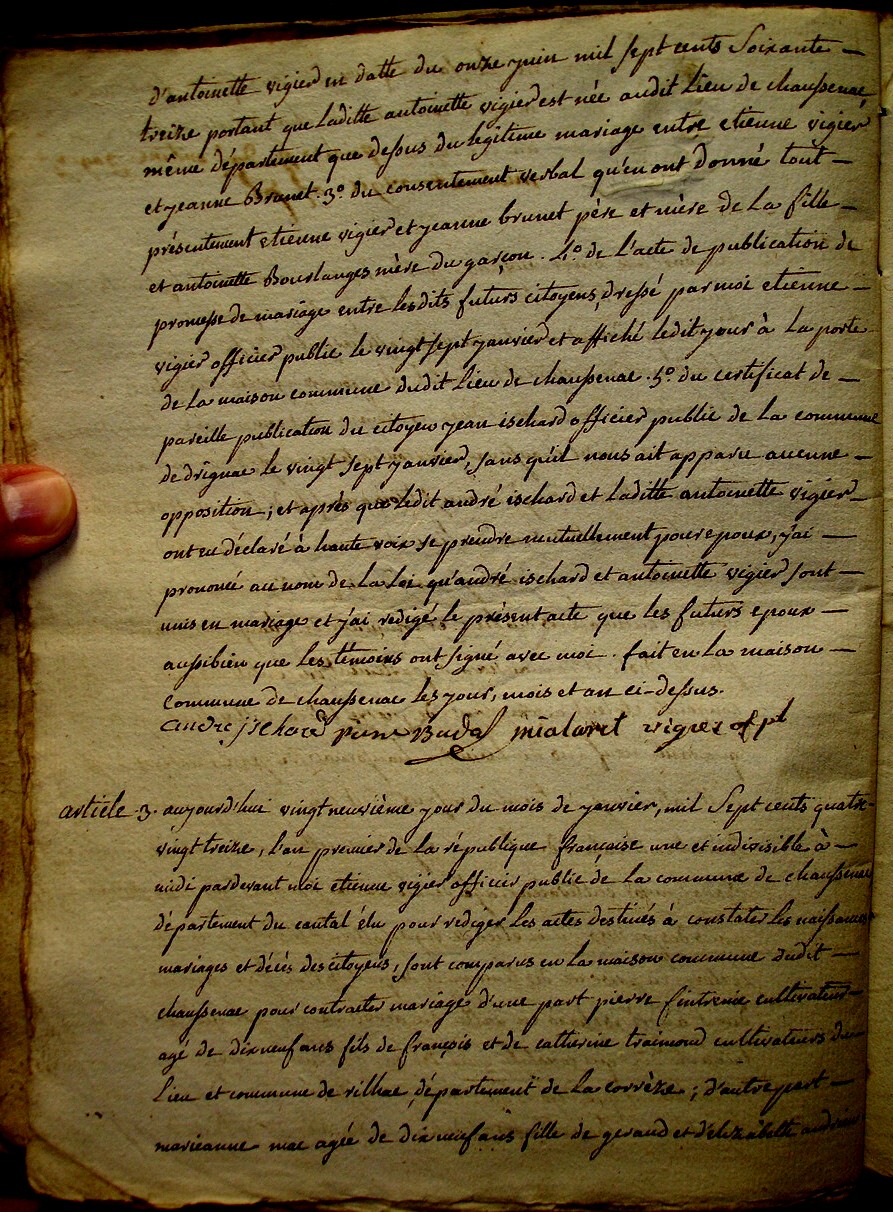 d'antoinette vigier en datte du onze juin mil sept cents soixante —
treize portant que laditte antoinette vigier est née audit Lieu de chaussenac
même département que dessus du legitime mariage entre etienne vigier
et jeanne Brunet. 3.º du consentement verbal qu'en ont donné tout —
présentement etienne vigier et jeanne brunet père et mère de La fille —
et antoinette Bourlanges mère du garçon. 4.º de L'acte de publication de
promesse de mariage entre lesdits futurs citoyens, dressé par moi etienne —
vigier officier public le vingt sept janvier et affiché ledit jour à La porte
de La maison commune dudit Lieu de chaussenac. 5.º du certificat de —
pareille publication du citoyen jean ischard officier public de La commune
de drignac le vingt sept janvier, sans qu'il nous ait apparu aucune —
opposition; et après que ledit andré ischard et laditte antoinette vigier —
ont eu déclaré à haute voix se prendre mutuellement pour epoux, j'ai —
prononcé au nom de La Loi qu'andré ischard et antoinette vigier sont —
unis en mariage et j'ai redigé le présent acte que les futurs epoux —
aussi bien que les témoins ont signé avec moi. fait en La maison —
commune de chaussenac les jour, mois et an ci-dessus.
andre ischard pierre mialaret vigier of pl
article 3. aujourd'hui vingt neuvième jour du mois de janvier, mil sept cents quatre
vingt treize, l'an premier de La république française une et indivisible à —
midi pardevant moi etienne vigier officier public de La commune de chaussenac
département du cantal élu pour rediger les actes destinés à constater les naissances
mariages et décès des citoyens, sont comparus en La maison commune dudit —
chaussenac pour contracter mariage d'une part pierre cultivateur —
agé de dix neuf ans fils de françois et de catherine traimond cultivateurs du
Lieu et commune de rilhac, département de La corrèze; d'autre part —
marieanne mac agée de dix neuf ans fille de geraud et d'elizabette